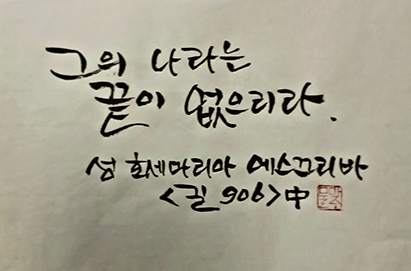 그의 나라는
끝이 없으리라.
성 호세마리아 에스끄리바
<길 906>中